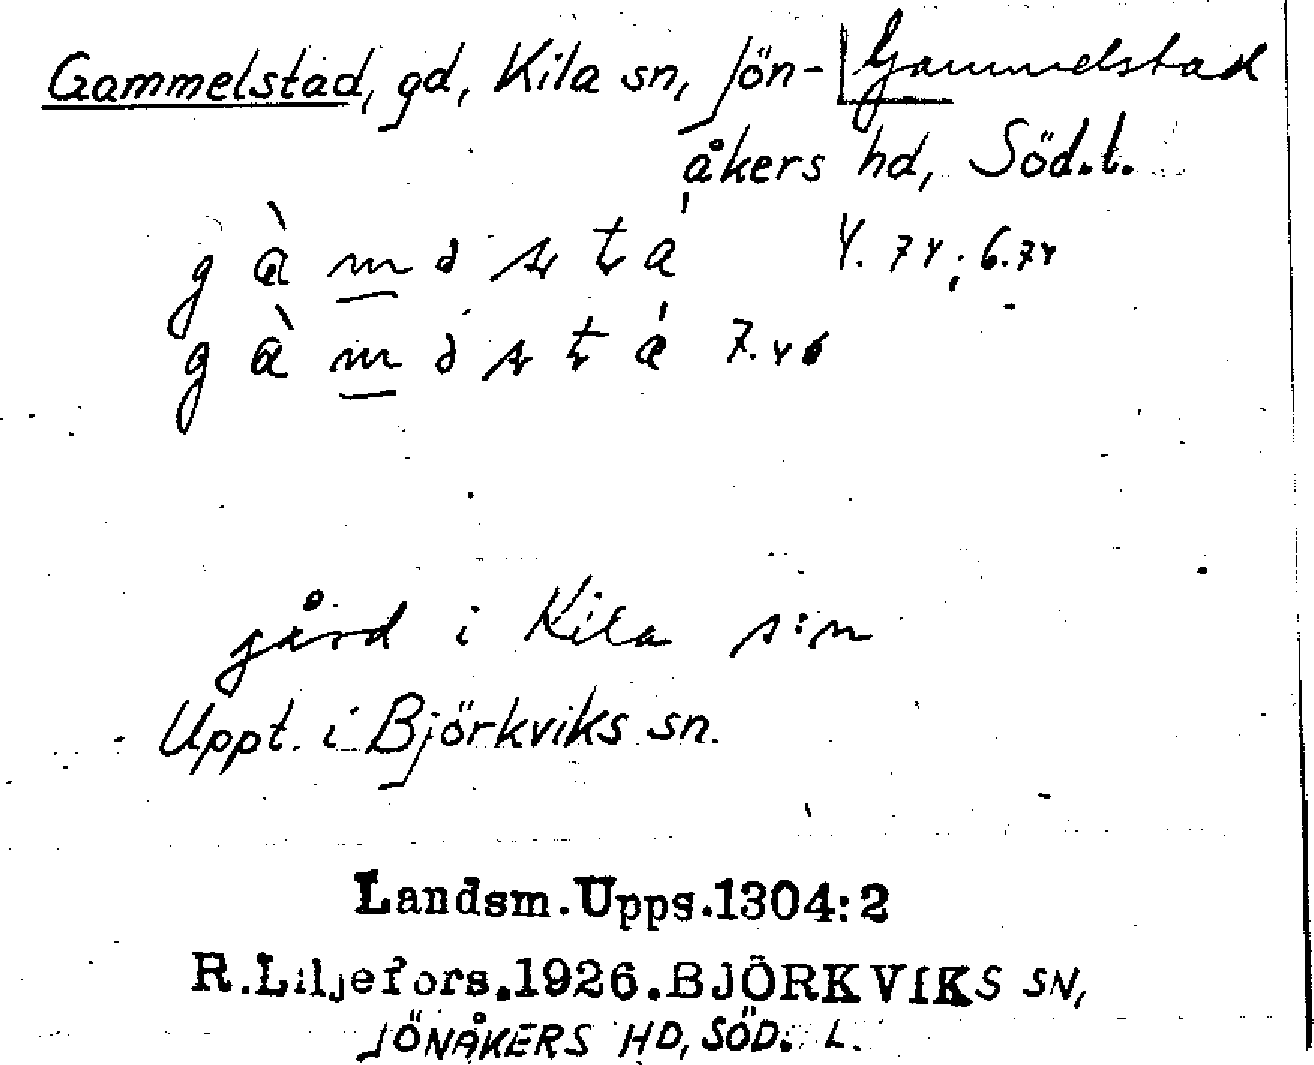 Gammelstad, gd, Kila sn, Jön- Gammelstad
åkers hd, Söd.l.
4. 74; 6.74
7.46
gård i Kila s:n
Uppt. i Björkviks sn.
Landsm.Upps.1304:2
R.Liljefors.1926.BJÖRKVIKS SN,
JÖNÅKERS HD, SÖD. L.